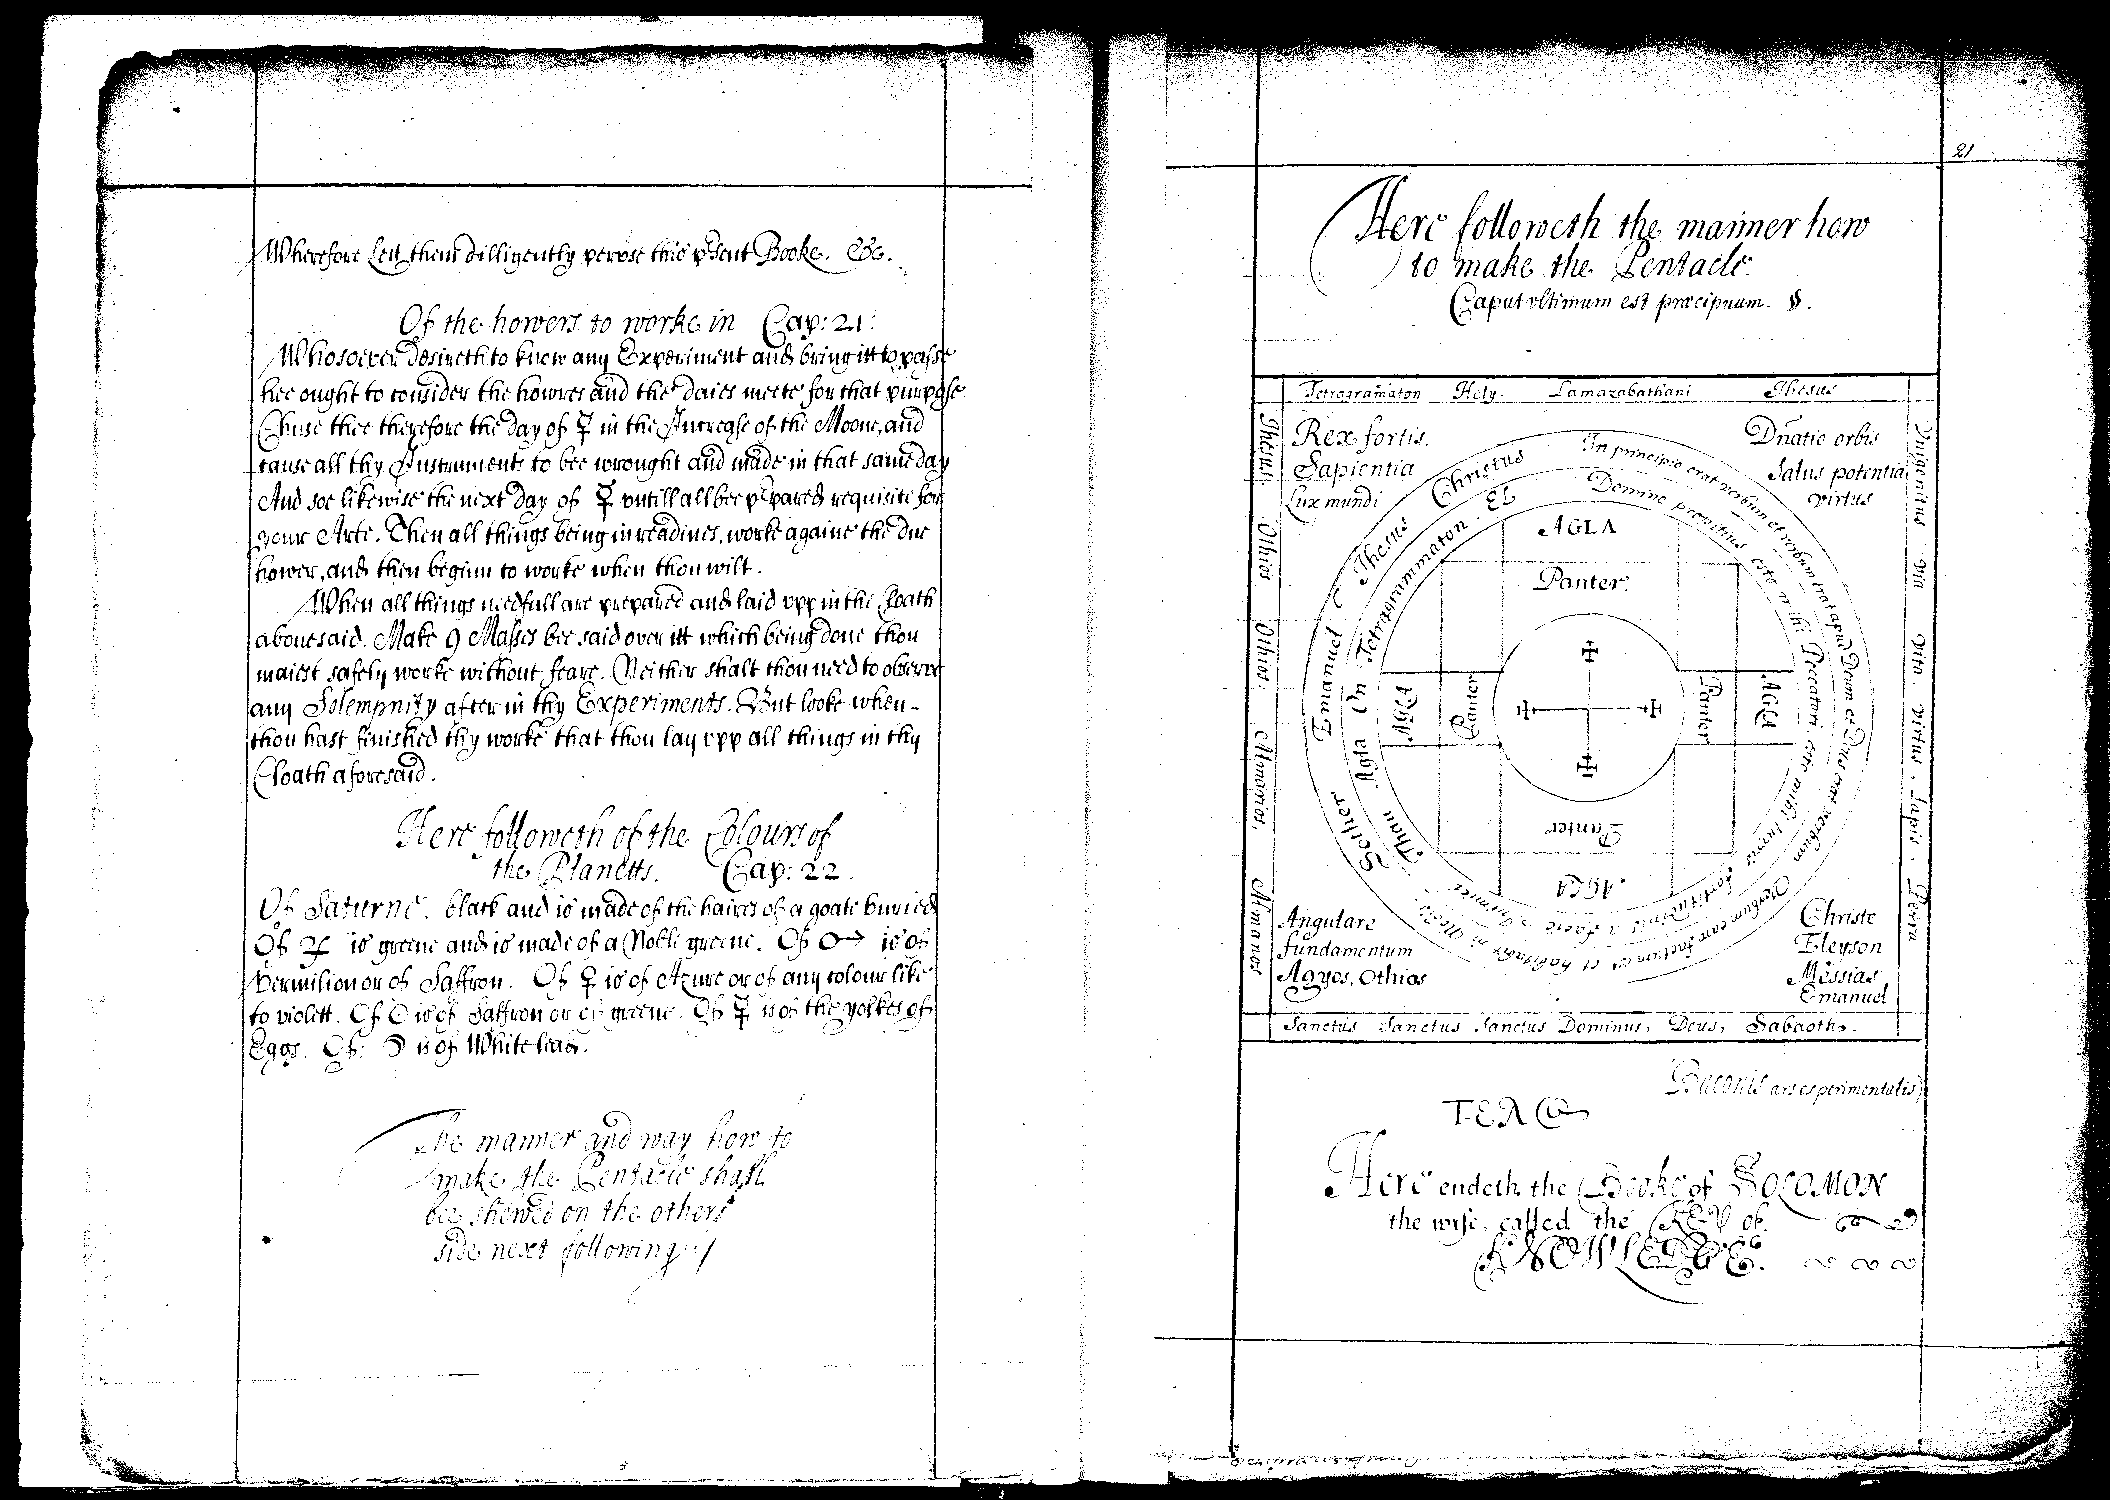 Wherefore lett them dilligently peruse this pſent Booke. &c.
Of the howers to worke in Cap: 21:
Whosoever desireth to know any Experiment and bring itt to passe
hee ought to consider the howres and the daies meete for that purpose
Chuse thee therefore the day of ☿ in the Increase of the Moone, and
cause all thy Instruments to bee wrought and made in that same day
And soe likewise the next day of ☿ untill all bee ppared requisite for
your Arte. Then all things being in readines, worke againe the due
hower, and then beginn to worke when thou wilt.
When all things needfull are prepared and laid vpp in the Cloath
abouesaid. Make 9 Masses bee said over itt which being done thou
maiest safely worke without feare. Neither shalt thou need to observe
any Solempnity after in thy Experiments. But looke when
thou hast finished thy worke that thou lay vpp all things in thy
Cloath aforesaid.
Here followeth of the Colours of
the Planetts. Cap: 22.
Of Saturne. black and is made of the haires of a goate buried
Of ♃ is greene and is made of a Noble greene. Of ♂ is of
Vermilion or of Saffron. Of ♀ is of Azure or of any colour like
to violett. Of ☉ is of Saffron or of greene. Of ☿ is of the yolkes of
Eggs. Of: ☽ is of White lead.
The manner and way how to
make the Pentacle shall
bee shewed on the others
side next following
21
Here followeth the manner how
to make the Pentacle.
Caput vltimum est præcipuum. §.
Tetrogramaton Hely. Lamazabathani Ihesus
Rex fortis.
Sapientia
Lux mundi
Dnatio orbis
Salus potentia
virtus
Ihesus Othios Othios: Almarios, Almanos
Vnigenitus Via Vita. Virtus. Lapis. Petra
Sother Emanuel Ihesus Christus
In principio erat verbum et verbum erat apud Deum et Deus erat verbum
Verbum caro factum est et habitavit in Nobis.
Thau Agla On Tetragrammaton. EL
Domine propitius esto mihi Peccatori, esto mihi turris
fortitudinis a facie Inimici
AGLA
Panter.
AGLA
Panter
Panter
AGLA
Panter
AGLA
Angulare
fundamentum
Agyos, Othios
Christe
Eleyson
Messias
Emanuel
Sanctus Sanctus Sanctus Dominus, Deus, Sabaoth.
Baconis ars experimentalis
Here endeth the Booke of SOLOMON
the wise, called the KEY of.
KNOWLEDGE.